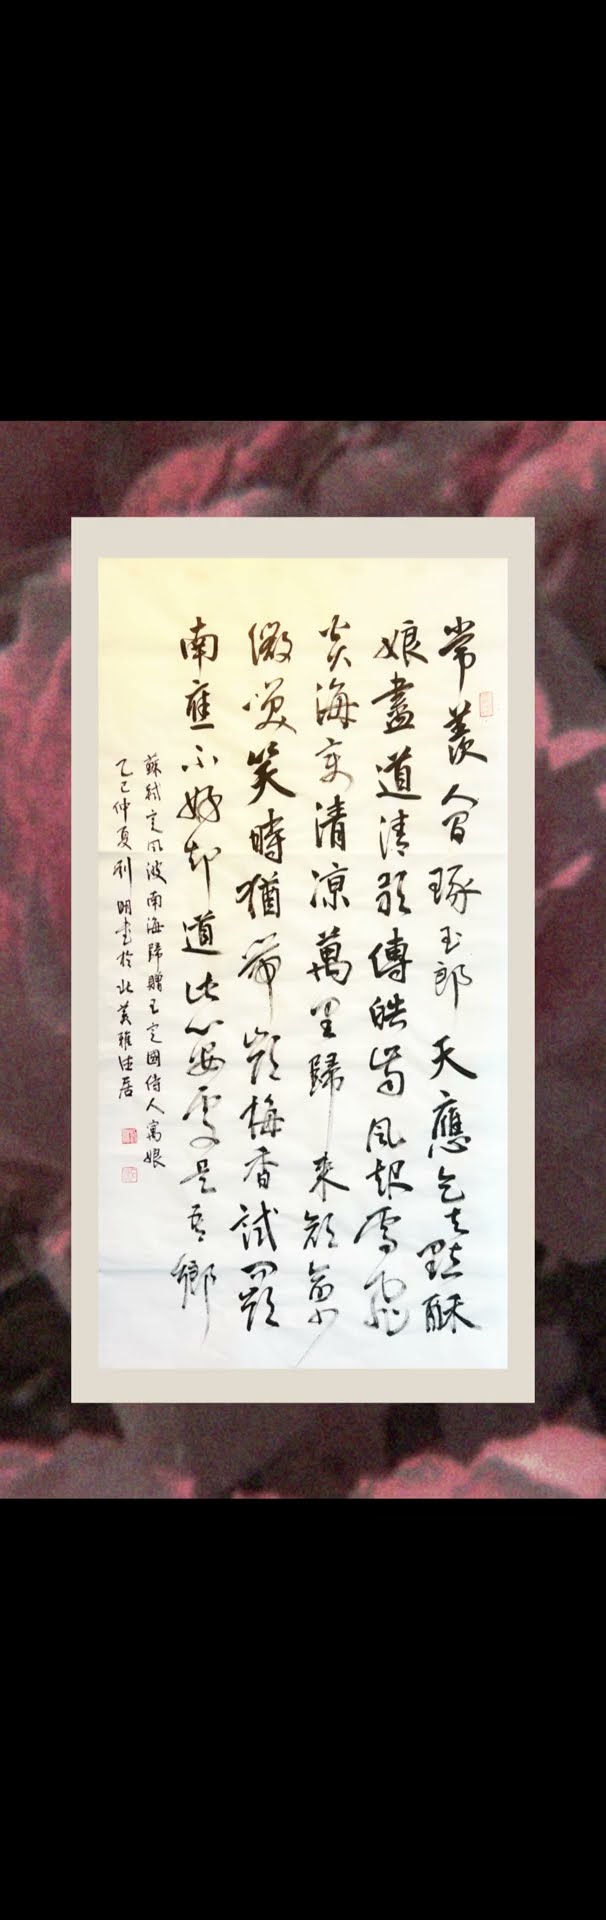 常羨人間琢玉郎天應乞與點酥
娘盡道清歌傳皓齒風起雪飛
炎海變清凉萬里歸來顏愈少
微笑笑時猶帶嶺梅香試問嶺
南應不好却道此心安處是吾鄉
蘇軾定風波南海歸贈王定國侍人寓娘
乙巳仲夏利明書於北美雅居